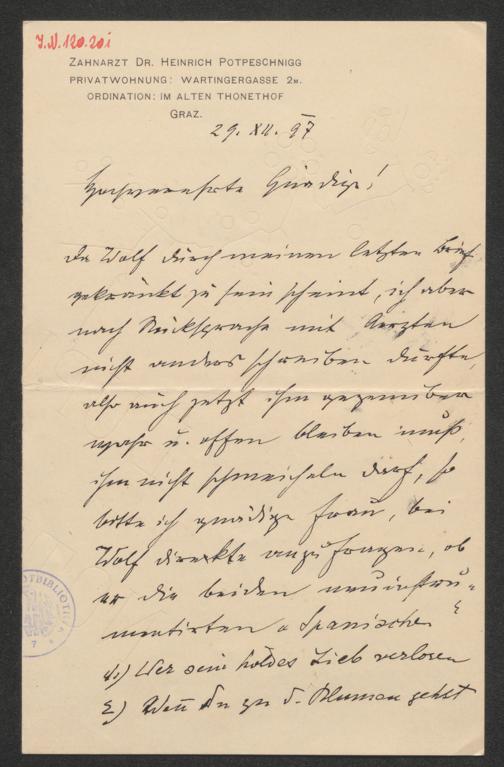 I.N. 120.201
ZAHNARZT DR. HEINRICH POTPESCHNIGG
PRIVATWOHNUNG: WARTINGERGASSE 2
ORDINATION: IM ALTEN THONETHOF
GRAZ.
29. XII. 97
Hochverehrte Gnädige!
Da Wolf durch meinen letzten Brief
gekränkt zu sein scheint, ich aber
nach Rücksprache mit Aerzten
nicht anders schreiben durfte,
also auch jetzt ihm gegenüber
wahr u. offen bleiben muß,
ihm nicht schmeicheln darf, so
bitte ich gnädige Frau, bei
Wolf direkte anzufragen, ob
er die beiden neuinstru-
mentirten Spanischen
1.) Wer sein holdes Lieb verloren
2) Wen̅ Du zu d. Blumen gehst
BIBLIOTHEK
7